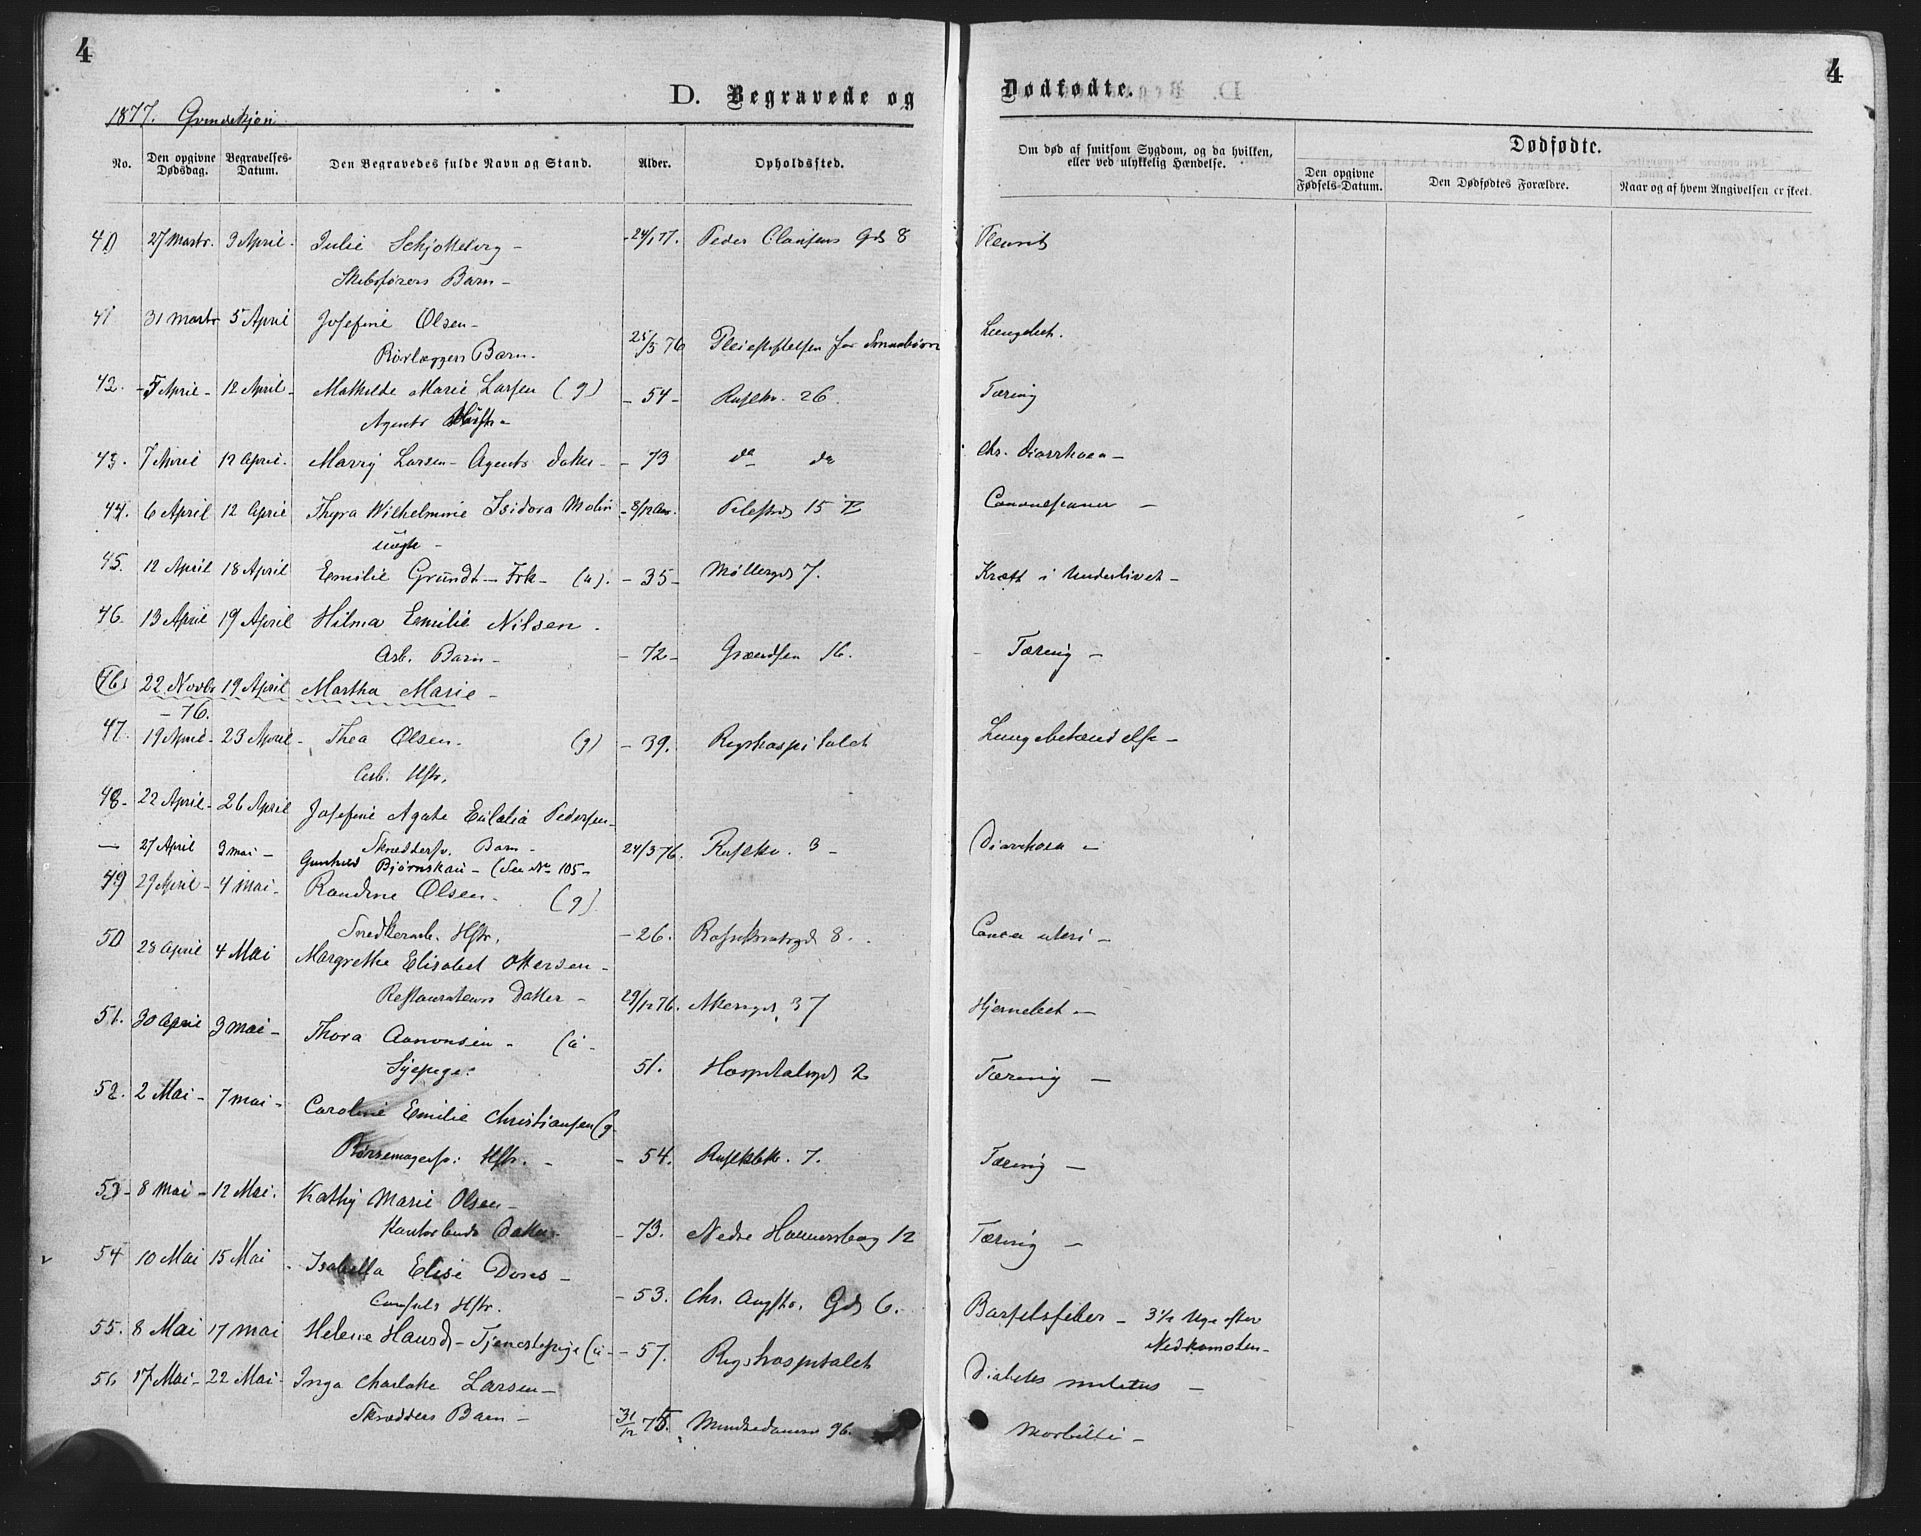 4
4
D. Begravede og Dødfødte.
1877.
No. Den opgivne Dødsdag. Begravelses-Datum. Den Begravedes fulde Navn og Stand. Alder. Opholdssted. Om død af smitsom Sygdom, og da hvilken, eller ved ulykkelig Hændelse.
Dødfødte.
Den opgivne Fødsels-Datum. Den Dødfødtes Forældre. Naar og af hvem Angivelsen er skeet.
40 27 Marts. 3 April - Julie Schjøtteberg - - 24/1 77. Peder Clausens Gd 8 Pleurit
Skibsførers Barn -
41 31 Marts 5 April Josefine Olsen -
Rørlæggers Barn. 25/3 76 Pleiestiftelsen for Smaabørn Lungebet.
42. - 5 April - 12 April - Mathilde Marie Larsen (g) - 54 - Rusløkv. 26. Tæring
Agents Hustr -
43. 7 April 12 April. Marry Larsen - Agents Datter - - 73 do do Chr. Diarrhoea -
44. 6 April 12 April Thyra Wilhelmine Isidora Molin - 8/12 Aar. Pilestræd 15
uægte -
45. 12 April 18 April Emilie Grundt - Frk - (u). - 35 - Møllergd 7. Kræft i Underlivet -
46. 13 April 19 April Hilma Emilie Nilsen -
Arb. Barn - - 72 - Grændsen 16. - Tæring -
22 Novbr 19 April Martha Marie -
- 76.
47. 19 April - 23 April - Thea Olsen. (g) - 39. Rigshospitalet Lungebetændelse -
Arb. Hstr.
48 - 22 April - 26 April Josefine Agate Eulalia Pedersen -
Skræddersv. Barn - 24/3 76. Rusløkv. 3 - Diarrhoea -
— 27 April 3 Mai - Gunhild Bjørnskau - (See No 105 -
49 29 April - 4 Mai - Randine Olsen - (g)
Snedkerarb. Hstr. - 26. 8. Cancer uteri -
50 28 April 4 Mai Margrethe Elisabet Ottersen -
Restaurateurs Datter - 29/12 76. Akersgd. 37 Hjernebet -
51. 30 April 3 Mai - Thora Aamonsen - (u -
Sypige. 51. Hospitalsgd 2 Tæring -
52. 2 Mai - 7 Mai - Caroline Emilie Christiansen (g -
Børsemagersv. Hstr. - - 54. Rusløkbk. 7. Tæring -
53 - 8 Mai - 12 Mai. Kathy Marie Olsen -
Kontorbuds Datter - - 73. Nedre Hammersborg 12 Tæring -
54 10 Mai 15 Mai - Isabella Elise Dons -
Consuls Hstr. - 53. Chr. Augsts. Gd 6. Barselsfeber - 3 1/2 Uge efter
Nedkomsten -
55. 8 Mai 17 Mai Helene Haurd - Tjenestepige (u - - 57. Rigshospitalet Diabetes melitus -
56 17 Mai - 22 Mai - Inga Charlotte Larsen -
Skrædders Barn - 31/12 75. Munkedamsv 96. Morbilli -